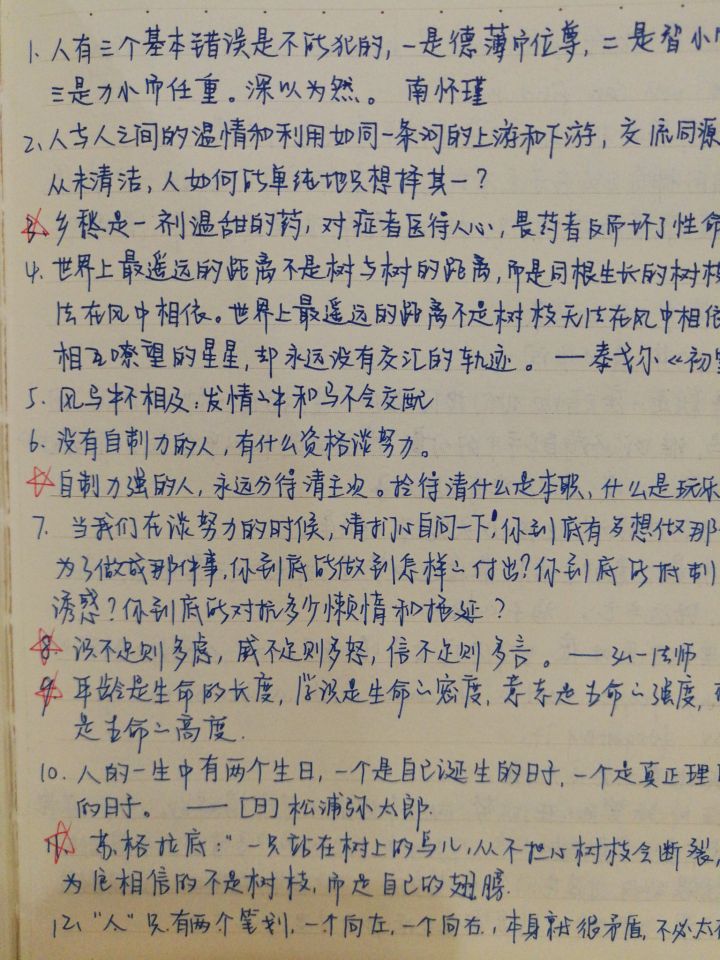 1. 人有三个基本错误是不能犯的, 一是德薄而位尊, 二是智小
三是力小而任重。深以为然。 南怀瑾
2、人与人之间的温情和利用如同一条河的上游和下游, 交流同源
从未清洁, 人如何能单纯地只想择其一?
3. 乡愁是一剂温甜的药, 对症者医得人心, 畏药者反而坏了性命
4. 世界上最遥远的距离不是树与树的距离, 而是同根生长的树枝
法在风中相依。世界上最遥远的距离不是树枝无法在风中相依
相互嘹望的星星, 却永远没有交汇的轨迹。 —泰戈尔《初
5. 风马牛不相及: 发情牛和马不会交配
6. 没有自制力的人, 有什么资格谈努力。
自制力强的人, 永远分得清主次。拎得清什么是本职, 什么是玩乐
7. 当我们在谈努力的时候, 请扪心自问一下! 你到底有多想做那
为了做成那件事, 你到底能做到怎样之付出? 你到底能抵制
诱惑? 你到底能对抗多少懒惰和拖延?
8. 识不足则多虑, 威不足则多怒, 信不足则多言。 ——弘一法师
9. 年龄是生命的长度, 学识是生命之密度, 意志是生命之强度,
是生命之高度.
10. 人的一生中有两个生日, 一个是自己诞生的日子, 一个是真正理
的日子。 ——[日]松浦弥太郎.
11. 苏格拉底: "一只站在树上的鸟儿, 从不担心树枝会断裂,
为它相信的不是树枝, 而是自己的翅膀.
12、"人"只有两个笔划, 一个向左, 一个向右, 本身就很矛盾, 不必太